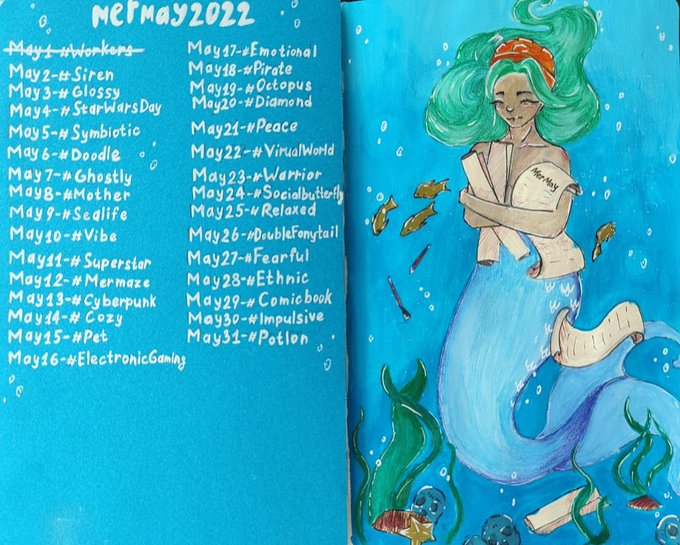 MerMay2022
May1-#Workers
May2-#Siren
May3-#Glossy
May4-#StarWarsDay
May5-#Symbiotic
May6-#Doodle
May7-#Ghostly
May8-#Mother
May9-#Sealife
May10-#Vibe
May11-#Superstar
May12-#Mermaze
May13-#Cyberpunk
May14-#Cozy
May15-#Pet
May16-#ElectronicGaming
May17-#Emotional
May18-#Pirate
May19-#Octopus
May20-#Diamond
May21-#Peace
May22-#VirualWorld
May23-#Warrior
May24-#Socialbutterfly
May25-#Relaxed
May26-#DoublePonytail
May27-#Fearful
May28-#Ethnic
May29-#Comicbook
May30-#Impulsive
May31-#Potion
MerMay